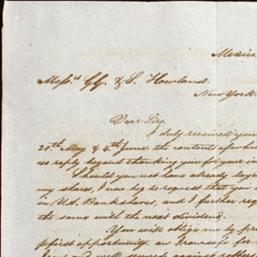 Mexico
Mess.rs GG. & S. Howland.
New York.
Dear Sirs
I duly received you
20th May & 4th June the contents of wh
no reply beyond thanking you for your in
Should you not have already
my shares, I now beg to request that you
in U.S. Bankshares, and I further re
the same with the next dividend.
You will oblige me by pr
first opportunity, an